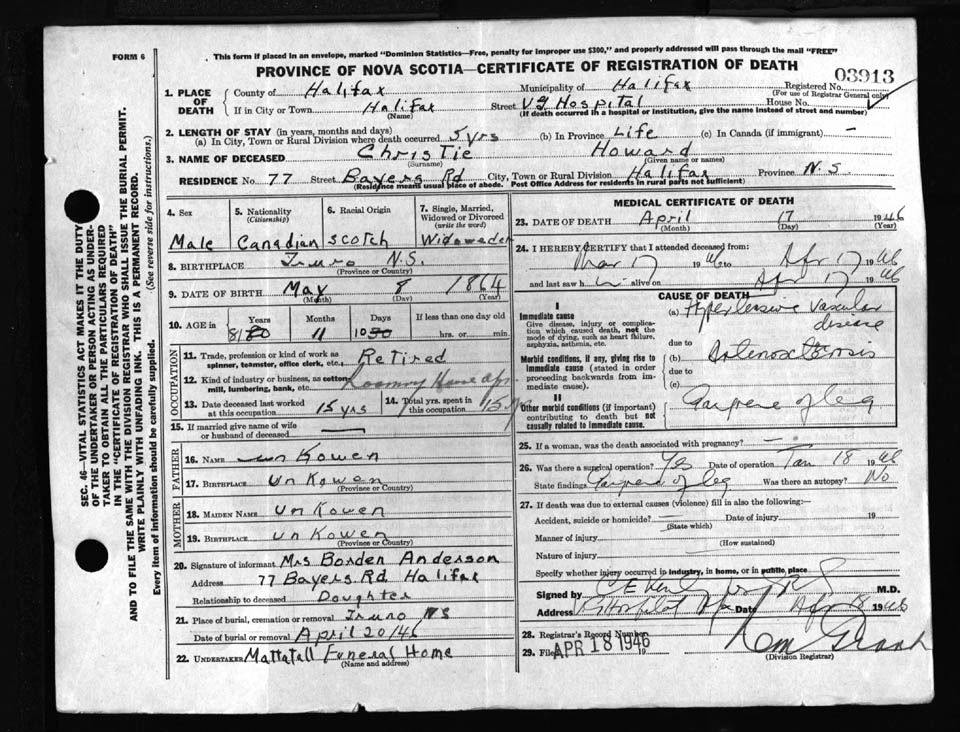 FORM 6
This form if placed in an envelope, marked "Dominion Statistics—Free, penalty for improper use $300," and properly addressed will pass through the mail "FREE"
PROVINCE OF NOVA SCOTIA—CERTIFICATE OF REGISTRATION OF DEATH
03913
1. PLACE OF DEATH
County of Halifax Municipality of Halifax Registered No.
(For use of Registrar General only)
If in City or Town Halifax Street V.G Hospital House No.
(Name) (If death occurred in a hospital or institution, give the name instead of street and number)
2. LENGTH OF STAY (in years, months and days)
(a) In City, Town or Rural Division where death occurred 5 yrs (b) In Province Life (c) In Canada (if immigrant) —
3. NAME OF DECEASED Christie Howard
(Surname) (Given name or names)
RESIDENCE No. 77 Street Bayers Rd City, Town or Rural Division Halifax Province N.S
(Residence means usual place of abode. Post Office Address for residents in rural parts not sufficient)
4. Sex
Male
5. Nationality (Citizenship)
Canadian
6. Racial Origin
Scotch
7. Single, Married, Widowed or Divorced (write the word)
Widoweded
8. BIRTHPLACE Truro N.S.
(Province or Country)
9. DATE OF BIRTH May 8 1864
(Month) (Day) (Year)
10. AGE in Years Months Days If less than one day old
81 11 10 hrs. or min.
OCCUPATION
11. Trade, profession or kind of work as spinner, teamster, office clerk, etc. Retired
12. Kind of industry or business, as cotton mill, lumbering, bank, etc. House
13. Date deceased last worked at this occupation 15 yrs
14. Total yrs. spent in this occupation 15
15. If married give name of wife or husband of deceased —
FATHER
16. NAME un Kowen
17. BIRTHPLACE un Kowen
(Province or Country)
MOTHER
18. MAIDEN NAME un Kowen
19. BIRTHPLACE un Kowen
(Province or Country)
20. Signature of informant Mrs Borden Anderson
Address 77 Bayers Rd Halifax
Relationship to deceased Doughter
21. Place of burial, cremation or removal Truro NS
Date of burial or removal April 20/46
22. UNDERTAKER Mattatall Funeral Home
(Name and address)
MEDICAL CERTIFICATE OF DEATH
23. DATE OF DEATH April 17 1946
(Month) (Day) (Year)
24. I HEREBY CERTIFY that I attended deceased from:
Mar 17 1946 to Apr 17 1946
and last saw h im alive on Apr 17 1946
CAUSE OF DEATH
I
Immediate cause
Give disease, injury or complication which caused death, not the mode of dying, such as heart failure, asphyxia, asthenia, etc.
(a) Hypertensive Vascular disease
due to
Morbid conditions, if any, giving rise to immediate cause (stated in order proceeding backwards from immediate cause).
(b)
due to
(c)
II
Other morbid conditions (if important) contributing to death but not causally related to immediate cause.
Gangrene of leg
25. If a woman, was the death associated with pregnancy? —
26. Was there a surgical operation? Yes Date of operation Jan 18 1946
State findings Gangrene of leg Was there an autopsy? No
27. If death was due to external causes (violence) fill in also the following:—
Accident, suicide or homicide? — Date of injury 19
(State which)
Manner of injury
(How sustained)
Nature of injury
Specify whether injury occurred in industry, in home, or in public place
Signed by M.D.
Address Date Apr 18 1946
28. Registrar's Record Number
29. Filed APR 18 1946 19
(Division Registrar)
SEC. 46—VITAL STATISTICS ACT MAKES IT THE DUTY
OF THE UNDERTAKER OR PERSON ACTING AS UNDERTAKER TO OBTAIN ALL THE PARTICULARS REQUIRED
IN THE "CERTIFICATE OF REGISTRATION OF DEATH"
AND TO FILE THE SAME WITH THE DIVISION REGISTRAR WHO SHALL ISSUE THE BURIAL PERMIT.
WRITE PLAINLY WITH UNFADING INK. THIS IS A PERMANENT RECORD.
Every item of information should be carefully supplied. (See reverse side for instructions.)